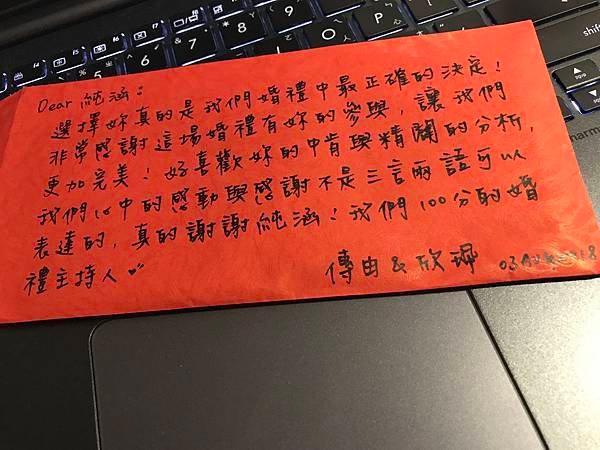 Dear 純涵：
選擇妳真的是我們婚禮中最正確的決定！
非常感謝這場婚禮有妳的參與，讓我們
更加完美！好喜歡妳的中肯與精闢的分析，
我們心中的感動與感謝不是三言兩語可以
表達的，真的謝謝純涵！我們100分的婚
禮主持人
傳由 & 欣
harman
shift
pgup
pgdn